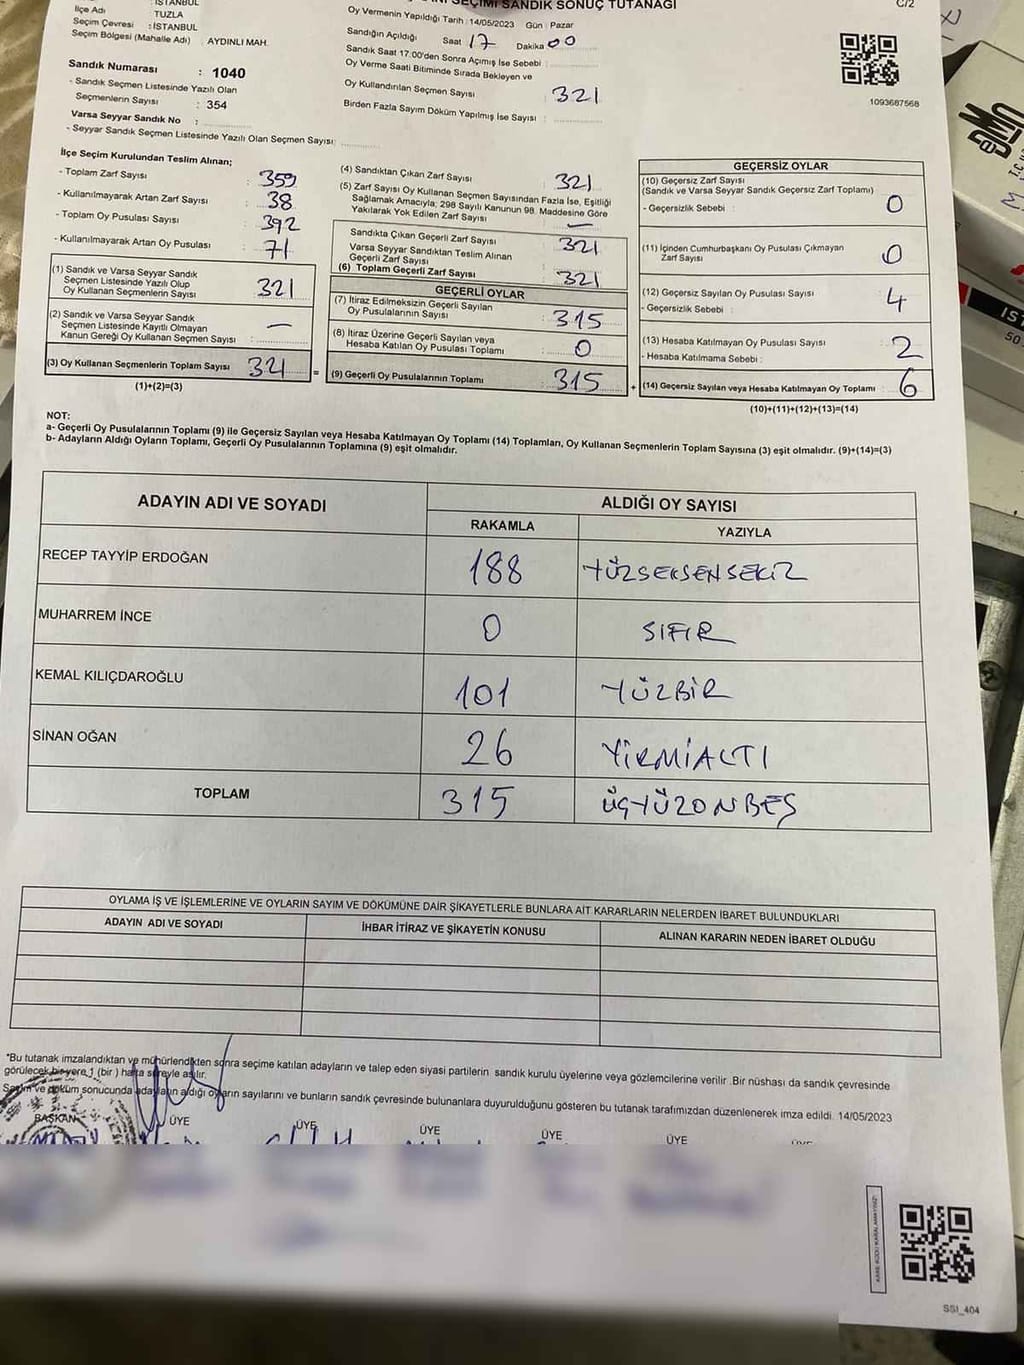 SEÇİMİ SANDIK SONUÇ TUTANAĞI
C/2
İSTANBUL
İlçe Adı TUZLA
Seçim Çevresi : İSTANBUL
Seçim Bölgesi (Mahalle Adı) AYDINLI MAH.
Sandık Numarası : 1040
- Sandık Seçmen Listesinde Yazılı Olan
Seçmenlerin Sayısı : 354
Varsa Seyyar Sandık No :
- Seyyar Sandık Seçmen Listesinde Yazılı Olan Seçmen Sayısı:
Oy Vermenin Yapıldığı Tarih : 14/05/2023 Gün : Pazar
Sandığın Açıldığı Saat 17 Dakika 00
Sandık Saat 17:00'den Sonra Açımış İse Sebebi :
Oy Verme Saati Bitiminde Sırada Bekleyen ve
Oy Kullandırılan Seçmen Sayısı 321
Birden Fazla Sayım Döküm Yapılmış İse Sayısı :
1093687568
İlçe Seçim Kurulundan Teslim Alınan;
- Toplam Zarf Sayısı : 359
- Kullanılmayarak Artan Zarf Sayısı : 38
- Toplam Oy Pusulası Sayısı : 392
- Kullanılmayarak Artan Oy Pusulası : 71
(1) Sandık ve Varsa Seyyar Sandık
Seçmen Listesinde Yazılı Olup
Oy Kullanan Seçmenlerin Sayısı 321
(2) Sandık ve Varsa Seyyar Sandık
Seçmen Listesinde Kayıtlı Olmayan
Kanun Gereği Oy Kullanan Seçmen Sayısı : —
(3) Oy Kullanan Seçmenlerin Toplam Sayısı 321
(1)+(2)=(3)
(4) Sandıktan Çıkan Zarf Sayısı 321
(5) Zarf Sayısı Oy Kullanan Seçmen Sayısından Fazla İse, Eşitliği
Sağlamak Amacıyla; 298 Sayılı Kanunun 98. Maddesine Göre
Yakılarak Yok Edilen Zarf Sayısı —
Sandıkta Çıkan Geçerli Zarf Sayısı 321
Varsa Seyyar Sandıktan Teslim Alınan
Geçerli Zarf Sayısı
(6) Toplam Geçerli Zarf Sayısı 321
GEÇERLİ OYLAR
(7) İtiraz Edilmeksizin Geçerli Sayılan
Oy Pusulalarının Sayısı : 315
(8) İtiraz Üzerine Geçerli Sayılan veya
Hesaba Katılan Oy Pusulası Toplamı : 0
= (9) Geçerli Oy Pusulalarının Toplamı : 315
GEÇERSİZ OYLAR
(10) Geçersiz Zarf Sayısı
(Sandık ve Varsa Seyyar Sandık Geçersiz Zarf Toplamı)
- Geçersizlik Sebebi : 0
(11) İçinden Cumhurbaşkanı Oy Pusulası Çıkmayan
Zarf Sayısı 0
(12) Geçersiz Sayılan Oy Pusulası Sayısı 4
- Geçersizlik Sebebi :
(13) Hesaba Katılmayan Oy Pusulası Sayısı 2
- Hesaba Katılmama Sebebi :
+ (14) Geçersiz Sayılan veya Hesaba Katılmayan Oy Toplamı : 6
(10)+(11)+(12)+(13)=(14)
NOT:
a- Geçerli Oy Pusulalarının Toplamı (9) ile Geçersiz Sayılan veya Hesaba Katılmayan Oy Toplamı (14) Toplamları, Oy Kullanan Seçmenlerin Toplam Sayısına (3) eşit olmalıdır. (9)+(14)=(3)
b- Adayların Aldığı Oyların Toplamı, Geçerli Oy Pusulalarının Toplamına (9) eşit olmalıdır.
ADAYIN ADI VE SOYADI ALDIĞI OY SAYISI
RAKAMLA YAZIYLA
RECEP TAYYİP ERDOĞAN 188 YÜZSEKSENSEKİZ
MUHARREM İNCE 0 SIFIR
KEMAL KILIÇDAROĞLU 101 YÜZBİR
SİNAN OĞAN 26 YİRMİALTI
TOPLAM 315 ÜÇYÜZONBEŞ
OYLAMA İŞ VE İŞLEMLERİNE VE OYLARIN SAYIM VE DÖKÜMÜNE DAİR ŞİKAYETLERLE BUNLARA AİT KARARLARIN NELERDEN İBARET BULUNDUKLARI
ADAYIN ADI VE SOYADI İHBAR İTİRAZ VE ŞİKAYETİN KONUSU ALINAN KARARIN NEDEN İBARET OLDUĞU
*Bu tutanak imzalandıktan ve mühürlendikten sonra seçime katılan adayların ve talep eden siyasi partilerin sandık kurulu üyelerine veya gözlemcilerine verilir .Bir nüshası da sandık çevresinde
görülecek bir yere 1 (bir ) hafta süreyle asılır.
Sayım ve döküm sonucunda adayların aldığı oyların sayılarını ve bunların sandık çevresinde bulunanlara duyurulduğunu gösteren bu tutanak tarafımızdan düzenlenerek imza edildi. 14/05/2023
BAŞKAN ÜYE ÜYE ÜYE ÜYE ÜYE
SSI_404